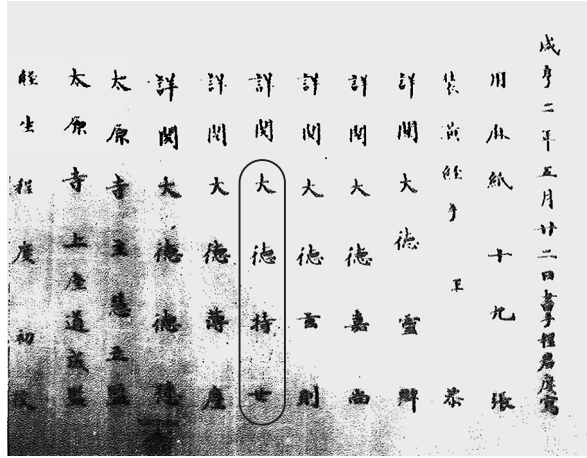 咸亨二年五月廿二日書手程君度寫
用麻紙十九張
裝潢經手王恭
詳閱大德靈辯
詳閱大德嘉尚
詳閱大德玄則
詳閱大德持世
詳閱大德薄塵
詳閱大德德
太原寺主慧立監
太原寺上座道成監
經生程度初